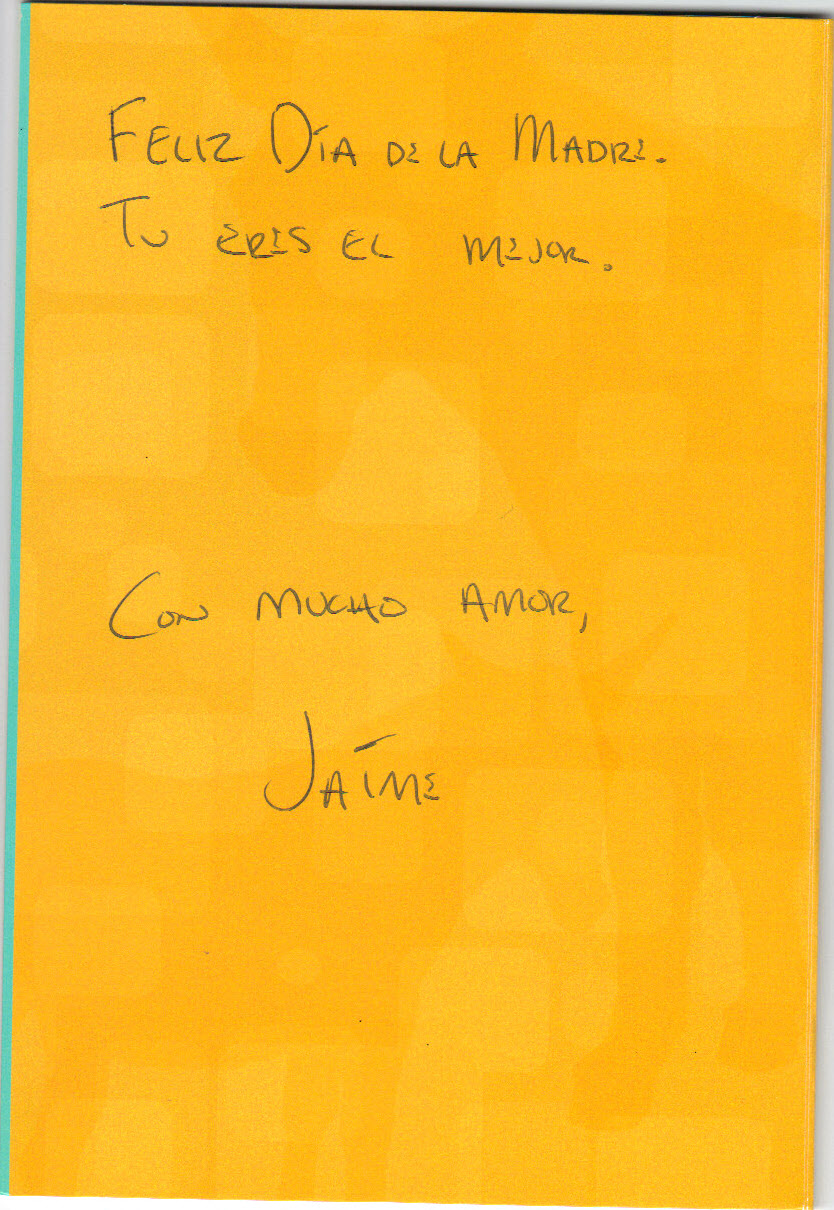 FELIZ DÍA DE LA MADRE.
TU ERES EL MEJOR.
CON MUCHO AMOR,
JAÍME